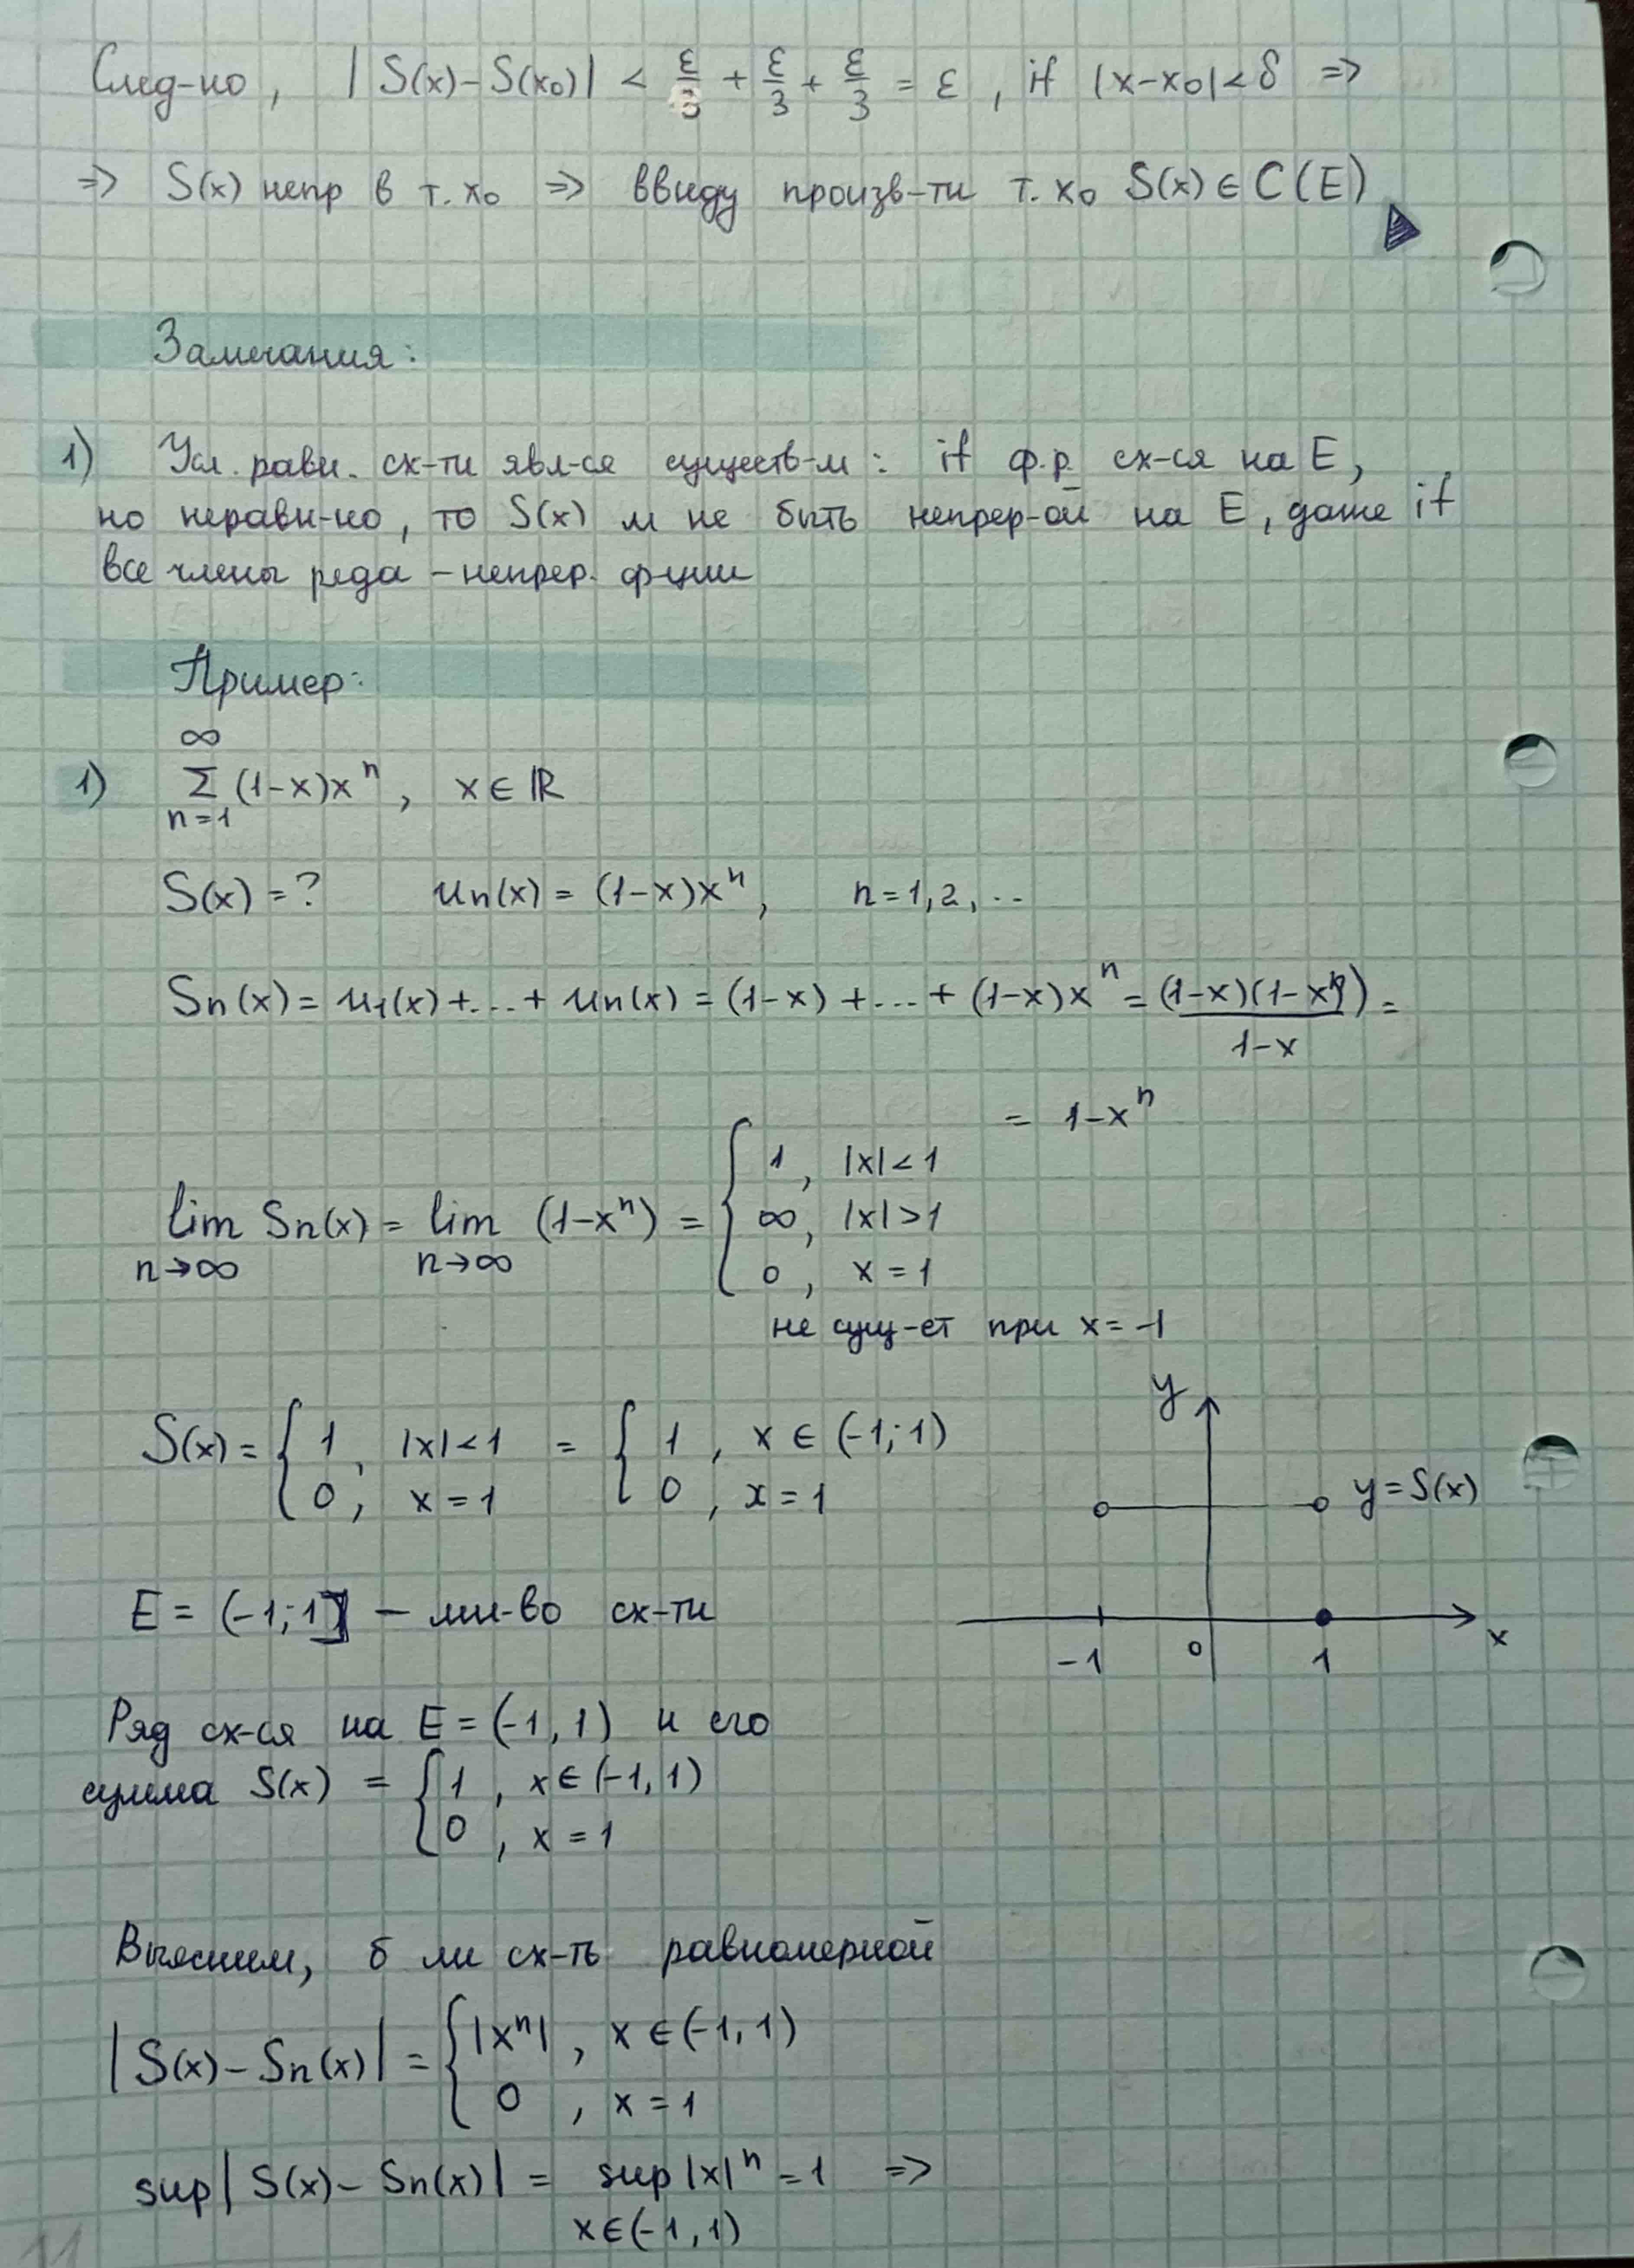 След-но, | S(x) – S(x₀) | < ε/3 + ε/3 + ε/3 = ε, if |x-x₀| < δ ⇒
⇒ S(x) непр в т. x₀ ⇒ ввиду произв-ти т. x₀ S(x) ∈ C(E)
Замечания:
1) Усл. равн. сх-ти явл-ся существ-м: if ф.р. сх-ся на E,
но неравн-но, то S(x) м не быть непрер-ой на E, даже if
все члены ряда – непрер. ф-ции
Пример:
1) ∑_{n=1}^{∞} (1-x)xⁿ, x ∈ ℝ
S(x) = ? uₙ(x) = (1-x)xⁿ, n = 1, 2, ..
Sₙ(x) = u₁(x) + ... + uₙ(x) = (1-x) + ... + (1-x)xⁿ = (1-x)(1-xⁿ)/(1-x) =
= 1-xⁿ
lim_{n→∞} Sₙ(x) = lim_{n→∞} (1-xⁿ) = { 1, |x| < 1
∞, |x| > 1
0, x = 1
не сущ-ет при x = -1
S(x) = { 1, |x| < 1 = { 1, x ∈ (-1; 1)
0, x = 1 0, x = 1
y
y = S(x)
-1 0 1 x
E = (-1; 1] – мн-во сх-ти
Ряд сх-ся на E = (-1, 1) и его
сумма S(x) = { 1, x ∈ (-1, 1)
0, x = 1
Выясним, б ли сх-ть равномерной
| S(x) – Sₙ(x) | = { |xⁿ|, x ∈ (-1, 1)
0, x = 1
sup | S(x) – Sₙ(x) | = sup_{x ∈ (-1, 1)} |x|ⁿ = 1 ⇒